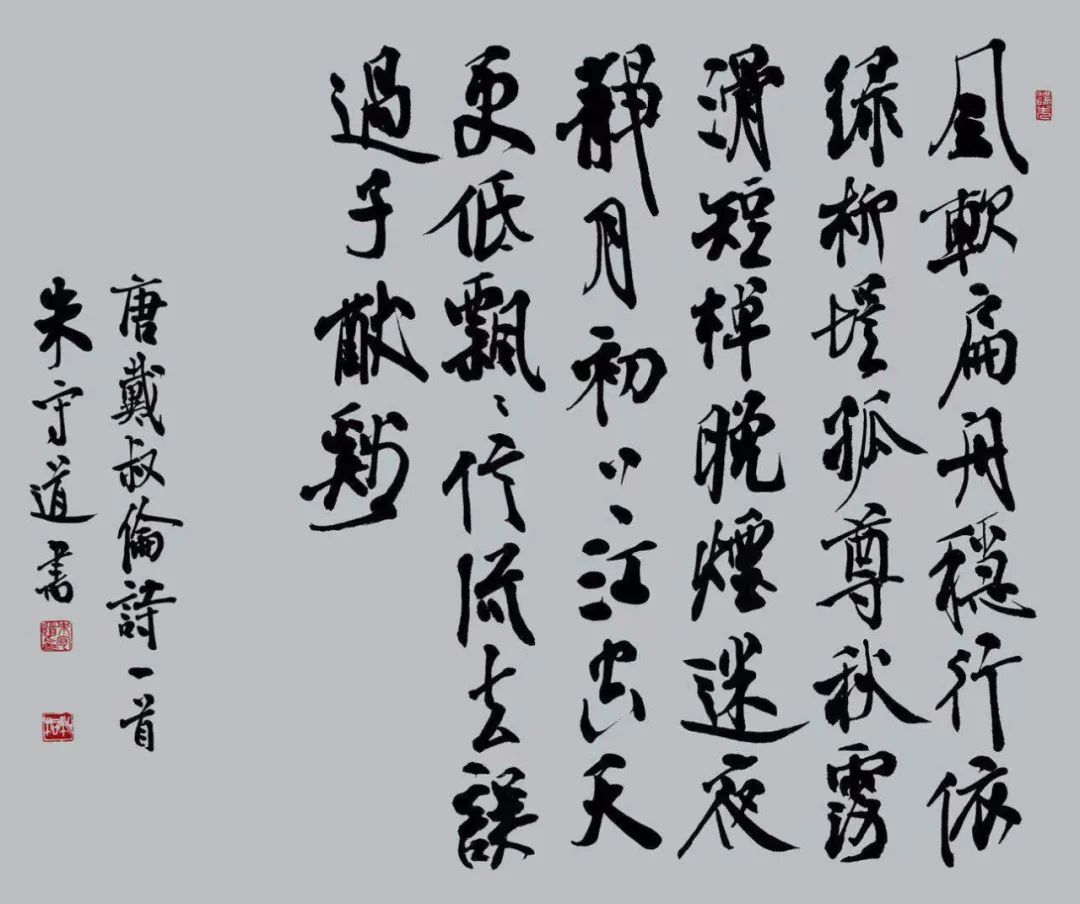 風軟扁舟穩行依
緑柳堤孤尊秋露
滑短棹晚煙迷夜
靜月初上江空天
更低飄〻信流去誤
過子猷谿
唐戴叔倫詩一首
朱守道書